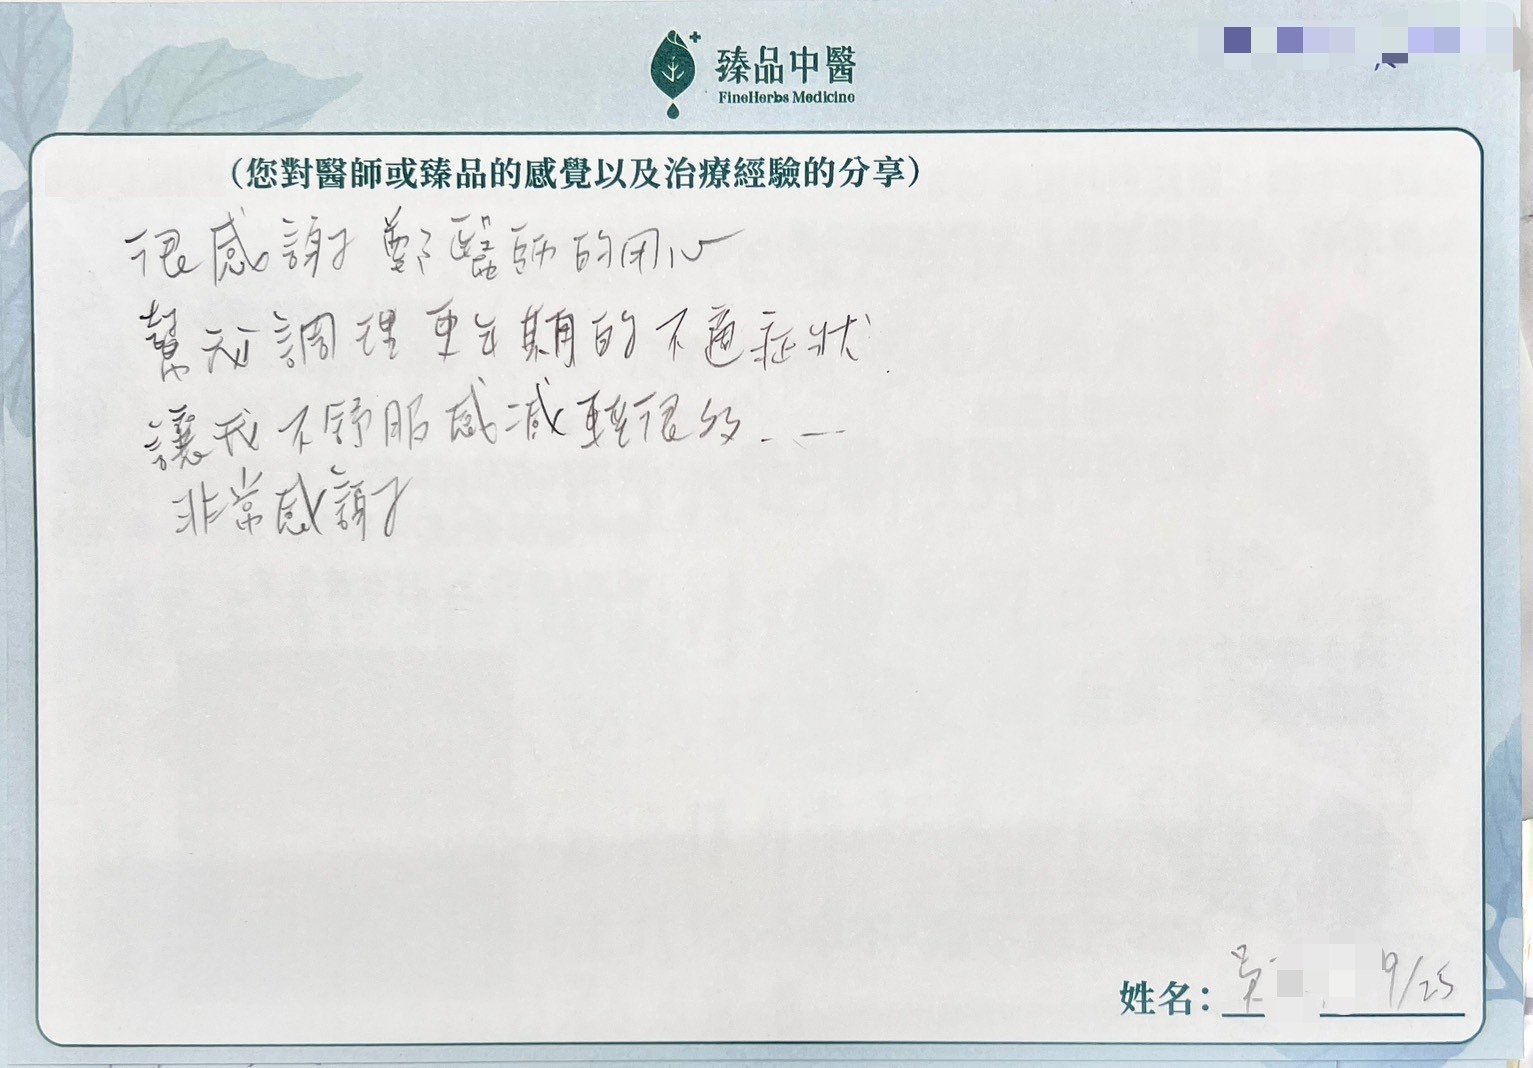 臻品中醫
FineHerbs Medicine
(您對醫師或臻品的感覺以及治療經驗的分享)
很感謝鄭醫師的用心
幫我調理更年期的不適症狀
讓我不舒服感減輕很多. —
非常感謝
姓名: 9/25